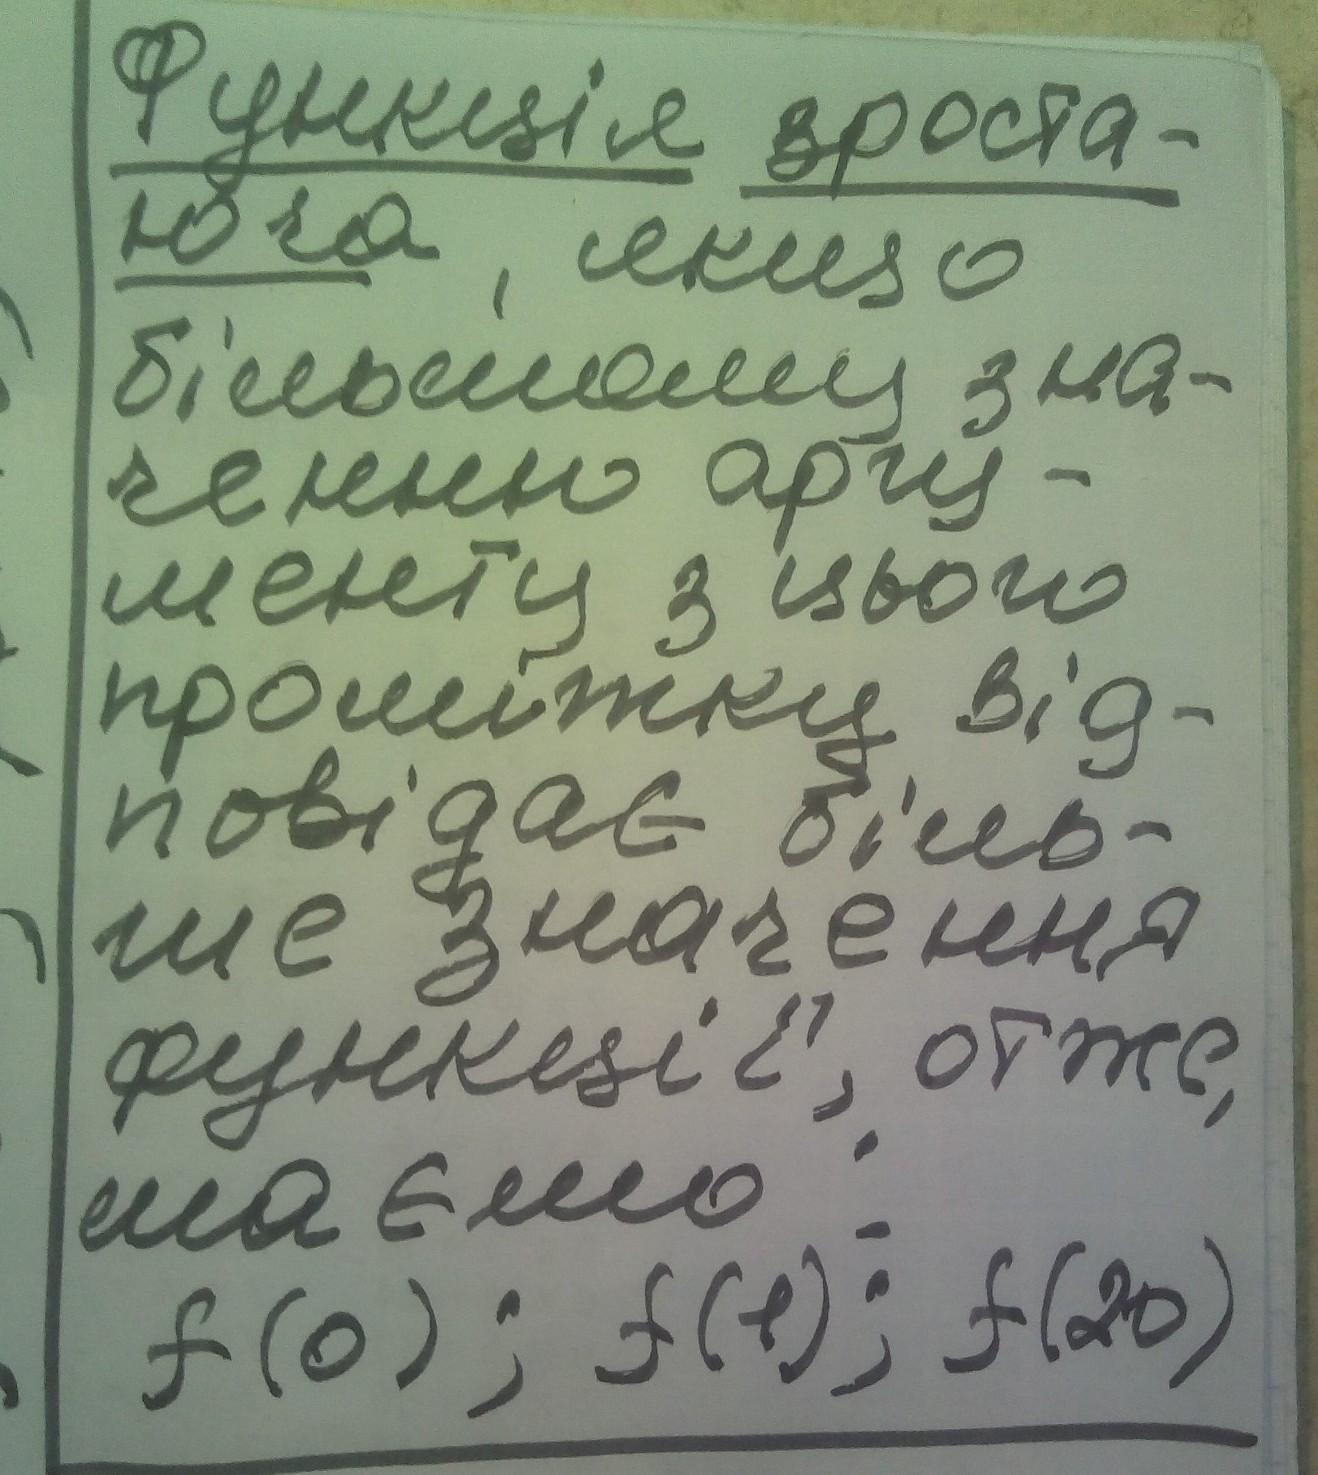 Функція зроста-
юча, якщо
більшому зна-
ченню аргу-
менту з цього
проміжку від-
повідає біль-
ше значення
функції, отже,
маємо :
f(0); f(1); f(20)